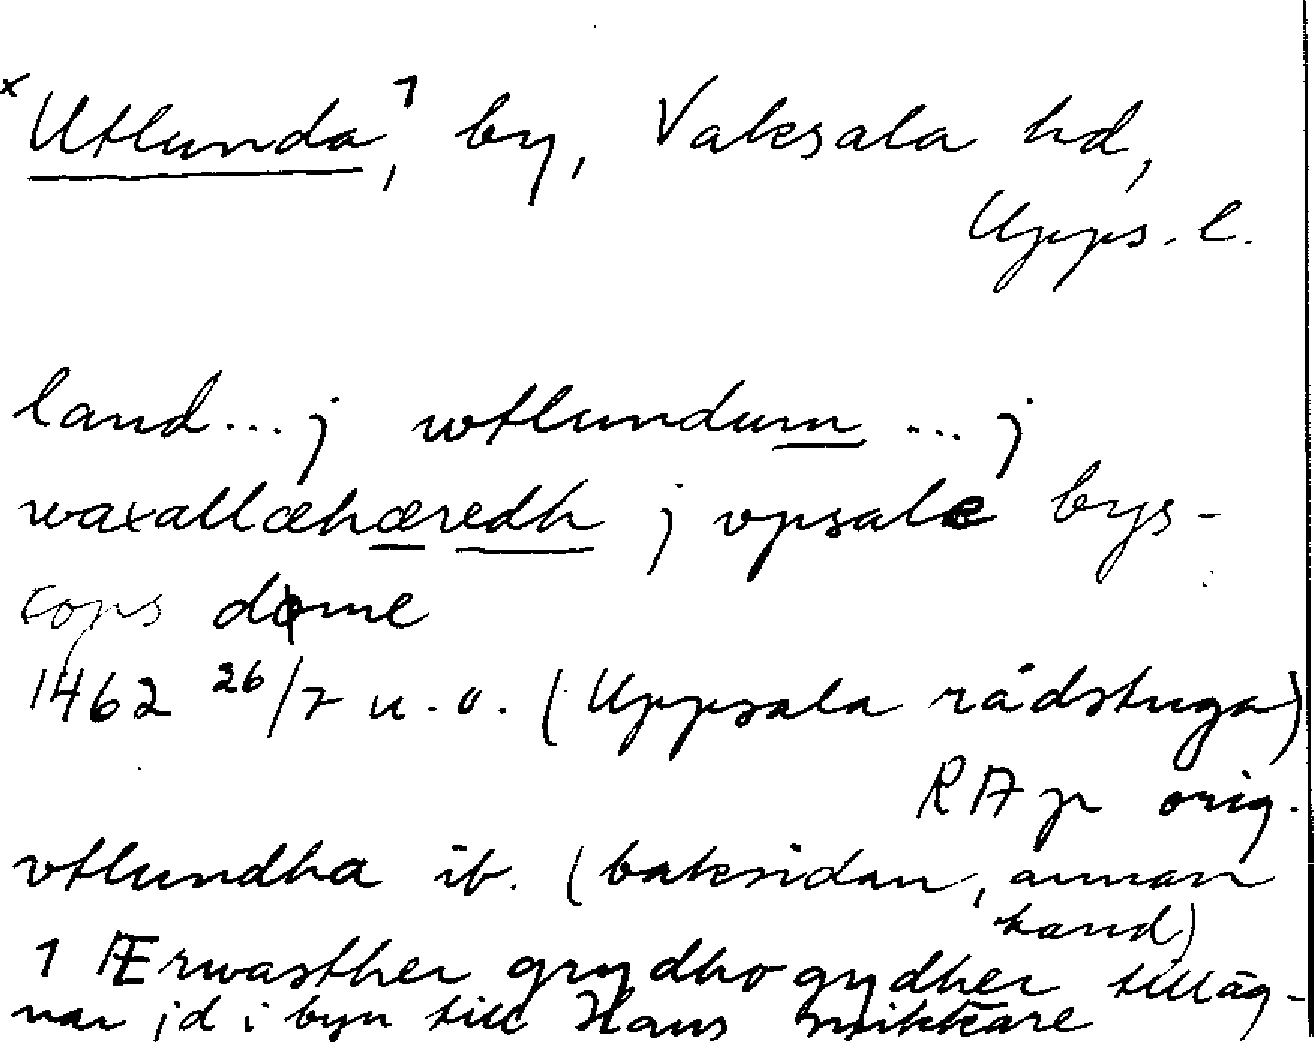 x Utlunda,¹ by, Vaksala hd,
Upps. l.
land... j wtlundum ... j
waxallæhæredh j vpsale bys-
cops døme
1462 26/7 u.o. (Uppsala rådstuga)
RA p orig.
vtlundha ib. (baksidan, annan
hand)
1 Ærwasther grydhogydher tilläg-
nar jd i byn till Hans